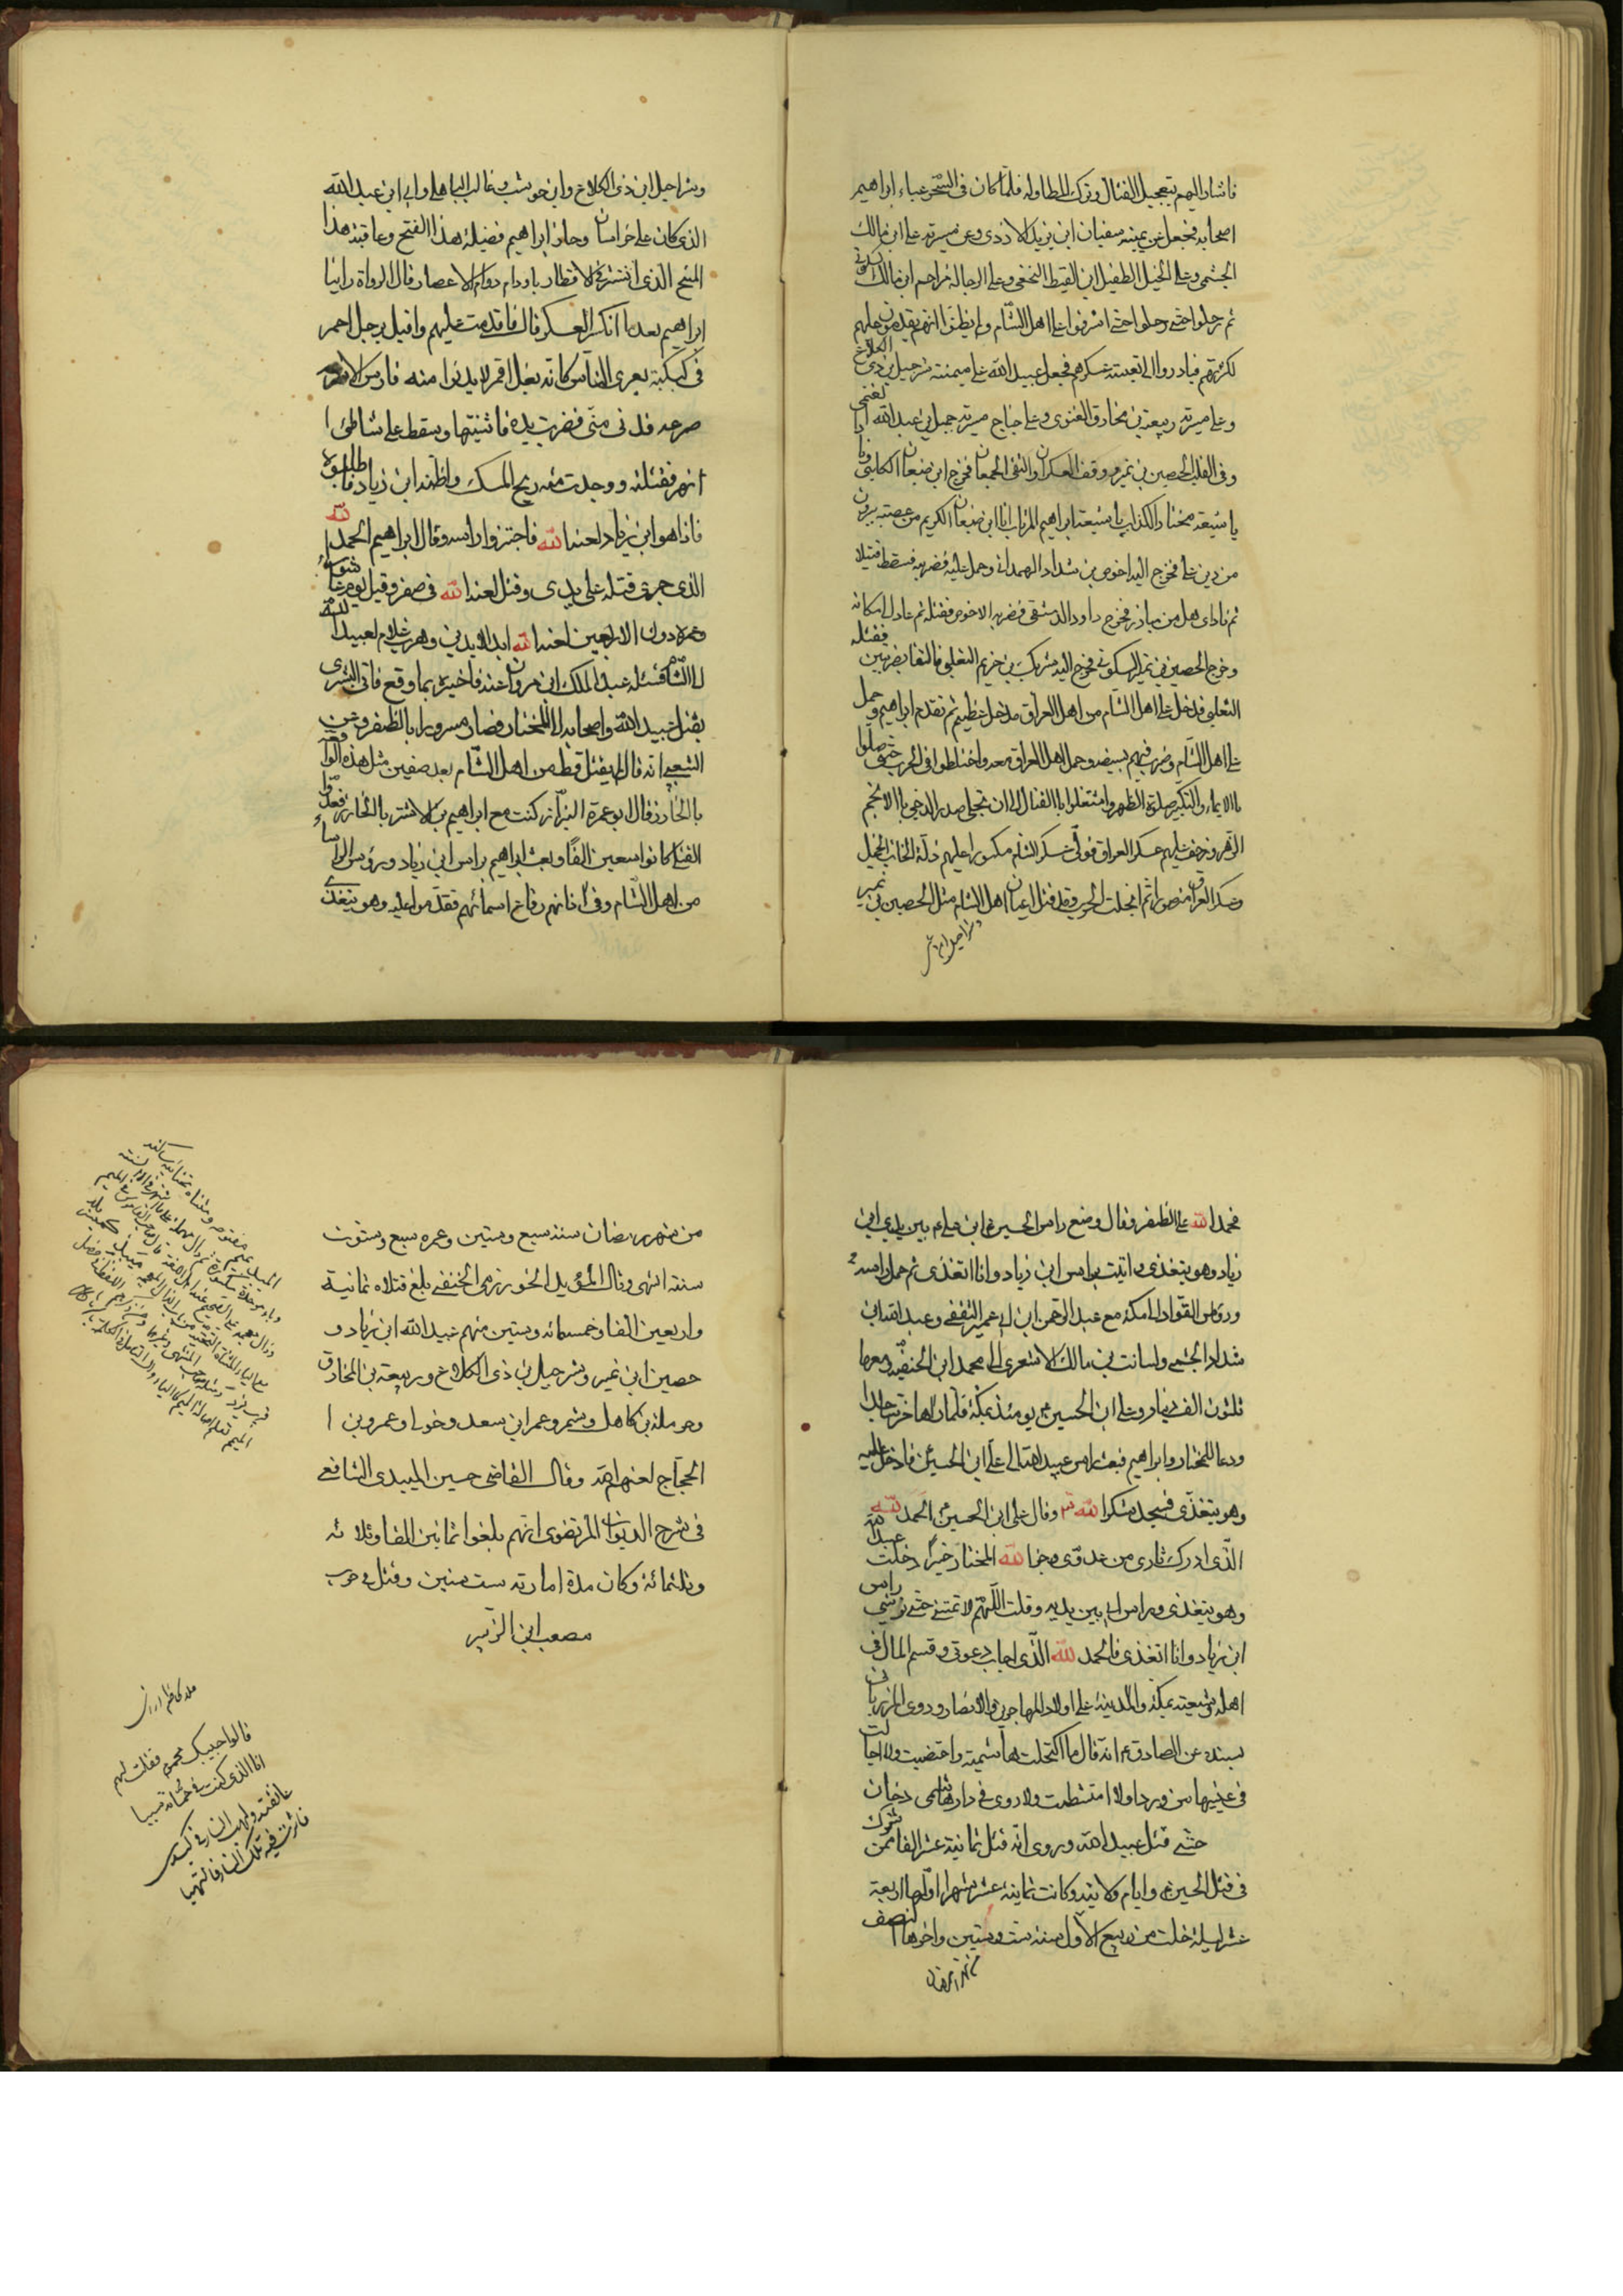 فاشار اليهم بتعجيل القتال وترك المطاوله فلما كان في السحر عباء ابراهيم
اصحابه فجعل عن يمينه سفيان ابن يزيد الازدي وعن ميسرته علي ابن مالك
الجشمي وعلى الخيل الطفيل ابن القيط النخعي وعلى الرجالة مزاحم ابن مالك السكوني
ثم رحلوا حتى اشرفوا على اهل الشام ولم يظنوا انهم يقدمون عليهم
لكثرتهم فبادروا الى تعبئة عسكرهم فجعل عبيد الله على ميمنته شرحيل بن ذي الكلاع
وعلى ميسرته ربيعة بن مخارق الغنوي وعلى جناح ميسرته جميل بن عبد الله الغنمي
وفي القلب الحصين بن نمير ووقف العسكران والتقى الجمعان فخرج ابن ضبعان الكلبي ونادا
يا شيعة مختار الكذاب يا شيعة ابراهيم المرتاب انا ابن ضبعان الكريم من عصبة يبرؤن
من دين علي فخرج اليه اخوص بن شداد الهمداني وحمل عليه فضربه فسقط قتيلا
ثم نادى هل من مبارز فخرج داود الدمشقي فضربه الاخوص فقتله ثم عاد الى مكانه
وخرج الحصين بن نمير السكوني فخرج اليه شريك بن خزيم التغلبي فالتقا بضربتين فقتله
التغلبي فدخل على اهل الشام من اهل العراق مدخل عظيم ثم تقدم ابراهيم وحمل
على اهل الشام وضرب فيهم بسيفه وحمل اهل العراق معه واختلطوا في الحرب حتى صلوا
بالايماء والتكبير صلوة الظهر واشتغلوا بالقتال الى ان تحلى صدر الدجى بالانجم
الزهر وزحف عليهم عسكر العراق فولى عسكر الشام مكسورا عليهم ذلة الخائب الخجل
وعسكر العراق منصورا ثم انجلت الحرب وقد قتل اعيان اهل الشام مثل الحصين بن نمير
وشراحيل ابن ذي الكلاع وابن حوشب وغالب الباهلي وابي ابن عبد الله
الذي كان على خراسان وحاز ابراهيم فضيلة هذا الفتح وعاقبة هذا
المنح الذي انتشر في الاقطار ودام دوام الاعصار قال الرواة راينا
ابراهيم بعد ما انكسر العسكر قال فاقدمت عليهم واقبل رجل احمر
في كبكبة يعرى الناس كانه بغل اقمر لا يدنوا منه فارس الا
صرعه فدنى مني فضربت يده فابنتها وسقط على شاطئ ا
لنهر فقتلته ووجدت منه ريح المسك واظنه ابن زياد فاطلبوه
فاذا هو ابن زياد لعنه الله فاجتزوا راسه وقال ابراهيم الحمد لله
الذي جرى قتله على يدي وقتل لعنه الله في صفر وقيل يوم عاشورا
وعمره دون الاربعين لعنه الله ابد الابدين وهرب غلام لعبيد الله
الى الشام فسئله عبد الملك ابن مروان عنه فاخبره بما وقع فاتى البشرى
بقتل عبيد الله واصحابه الى المختار فصار مسرورا بالظفر وعن
الشعبي انه قال لم يقتل قط من اهل الشام بعد صفين مثل هذه الواقعة
بالخازر قال ابو عمرة البزاز كنت مع ابراهيم بن الاشتر بالخازر فعدوا
القتلى كانوا سبعين الفا وبعث ابراهيم براس ابن زياد ورؤس الروساء
من اهل الشام وفي اذانهم رقاع اسمائهم فقدموا عليه وهو يتغدى
فحمد الله على الظفر وقال وضع راس الحسين ابن علي ع بين يدي ابن
زياد وهو يتغذى واتيت براس ابن زياد وانا اتغذى ثم حمل راسه
ورؤس القواد الى مكة مع عبد الرحمن ابن ابي عمير الثقفي وعبد الله ابن
شداد الجشمي والسائب بن مالك الاشعري الى محمد ابن الحنفية ومعها
ثلثون الف دينار وعلي ابن الحسين ع يومئذ بمكة فلما راها خر ساجدا
ودعا للمختار وابراهيم فبعث براس عبيد الله الى علي ابن الحسين فادخل عليه
وهو يتغذى فسجد شكرا لله وقال علي ابن الحسين ع الحمد لله
الذي ادرك ثاري من عدوي وجزا الله المختار خيرا دخلت
وهو يتغذى وراس ابي بين يديه وقلت اللهم لا تمتني حتى تريني راس
ابن زياد وانا اتغذى فالحمد لله الذي اجاب دعوتي وقسم المال في
اهله وشيعته بمكة والمدينة على اولاد المهاجرين والانصار وروى المرزباني
بسنده عن الصادق ع انه قال ما اكتحلت هاشمية واختضبت ولا
ولا امتشطت ولا روي في دار هاشمي دخان
حتى قتل عبيد الله وروي انه قتل ثمانية عشر الفا ممن شرك
في قتل الحسين ع وايام ولايته وكانت ثمانية عشر شهرا اولها اربعة
عشر ليلة خلت من ربيع الاول سنة ست وستين واخرها النصف
من شهر رمضان سنة سبع وستين وعمره سبع وستون
سنة انتهى وقال المؤيد الخورزمي الحنفي بلغ قتلاه ثمانية
واربعين الفا وخمسمائه وستين منهم عبيد الله ابن زياد و
حصين ابن نمير وشرحيل بن ذي الكلاع وربيعة بن المخارق
وحرملة بن كاهل وشمر وعمر ابن سعد وخولي وعمرو بن ا
الحجاج لعنهم الله وقال القاضي حسين الميبدي الشافعي
في شرح الديوان المرتضوي انهم بلغوا ثمانين الفا وثلاثه
وثلثمائة وكان مدة امارته ست سنين وقتل في حرب
مصعب ابن الزبير
قالوا حبيبك محموم فقلت لهم
انا الذي كنت في حمائه سببا
عانقته ولهيب النار في كبدي
فاثرت فيه تلك النار فالتهبا